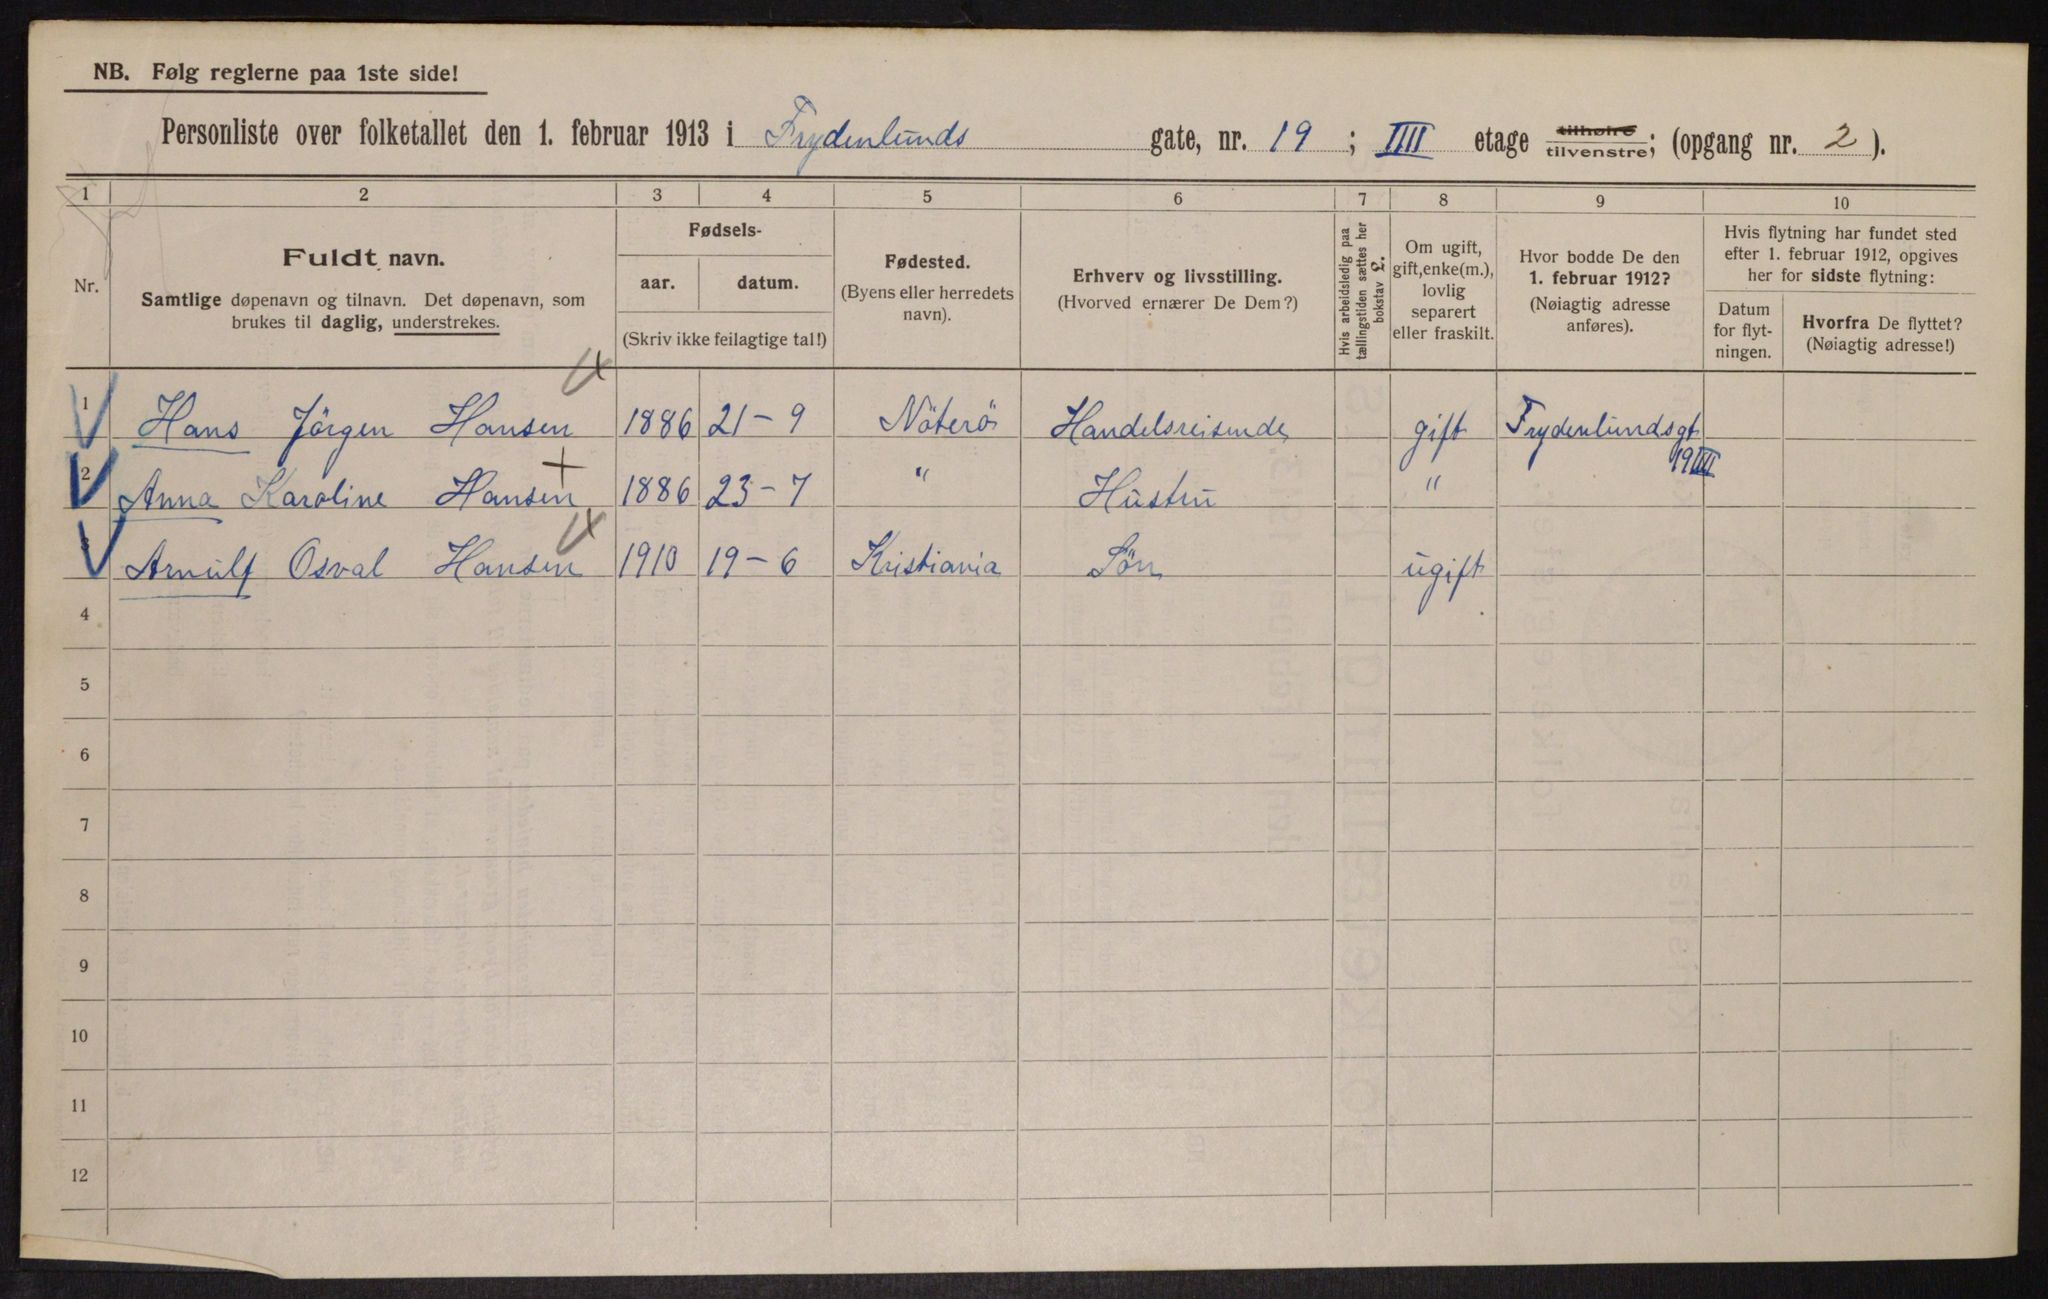 NB. Følg reglerne paa 1ste side!
Personliste over folketallet den 1. februar 1913 i Frydenlunds gate, nr. 19 ; IIII etage tilhøire tilvenstre; (opgang nr. 2 ).
1 2 3 4 5 6 7 8 9 10
Nr.
Fuldt navn.
Samtlige døpenavn og tilnavn. Det døpenavn, som
brukes til daglig, understrekes.
Fødsels-
aar. datum.
(Skriv ikke feilagtige tal!)
Fødested.
(Byens eller herredets
navn).
Erhverv og livsstilling.
(Hvorved ernærer De Dem?)
Hvis arbeidsledig paa
tællingstiden sættes her
bokstav L.
Om ugift,
gift, enke(m.),
lovlig
separert
eller fraskilt.
Hvor bodde De den
1. februar 1912?
(Nøiagtig adresse
anføres).
Hvis flytning har fundet sted
efter 1. februar 1912, opgives
her for sidste flytning:
Datum
for flyt-
ningen.
Hvorfra De flyttet?
(Nøiagtig adresse!)
1 Hans Jörgen Hansen 1886 21-9 Nöterö Handelsreisende gift Frydenlundsgt
19 IIII
2 Anna Karoline Hansen 1886 23-7 " Hustru "
3 Arnulf Osval Hansen 1910 19-6 Kristiania Sön ugift
4
5
6
7
8
9
10
11
12